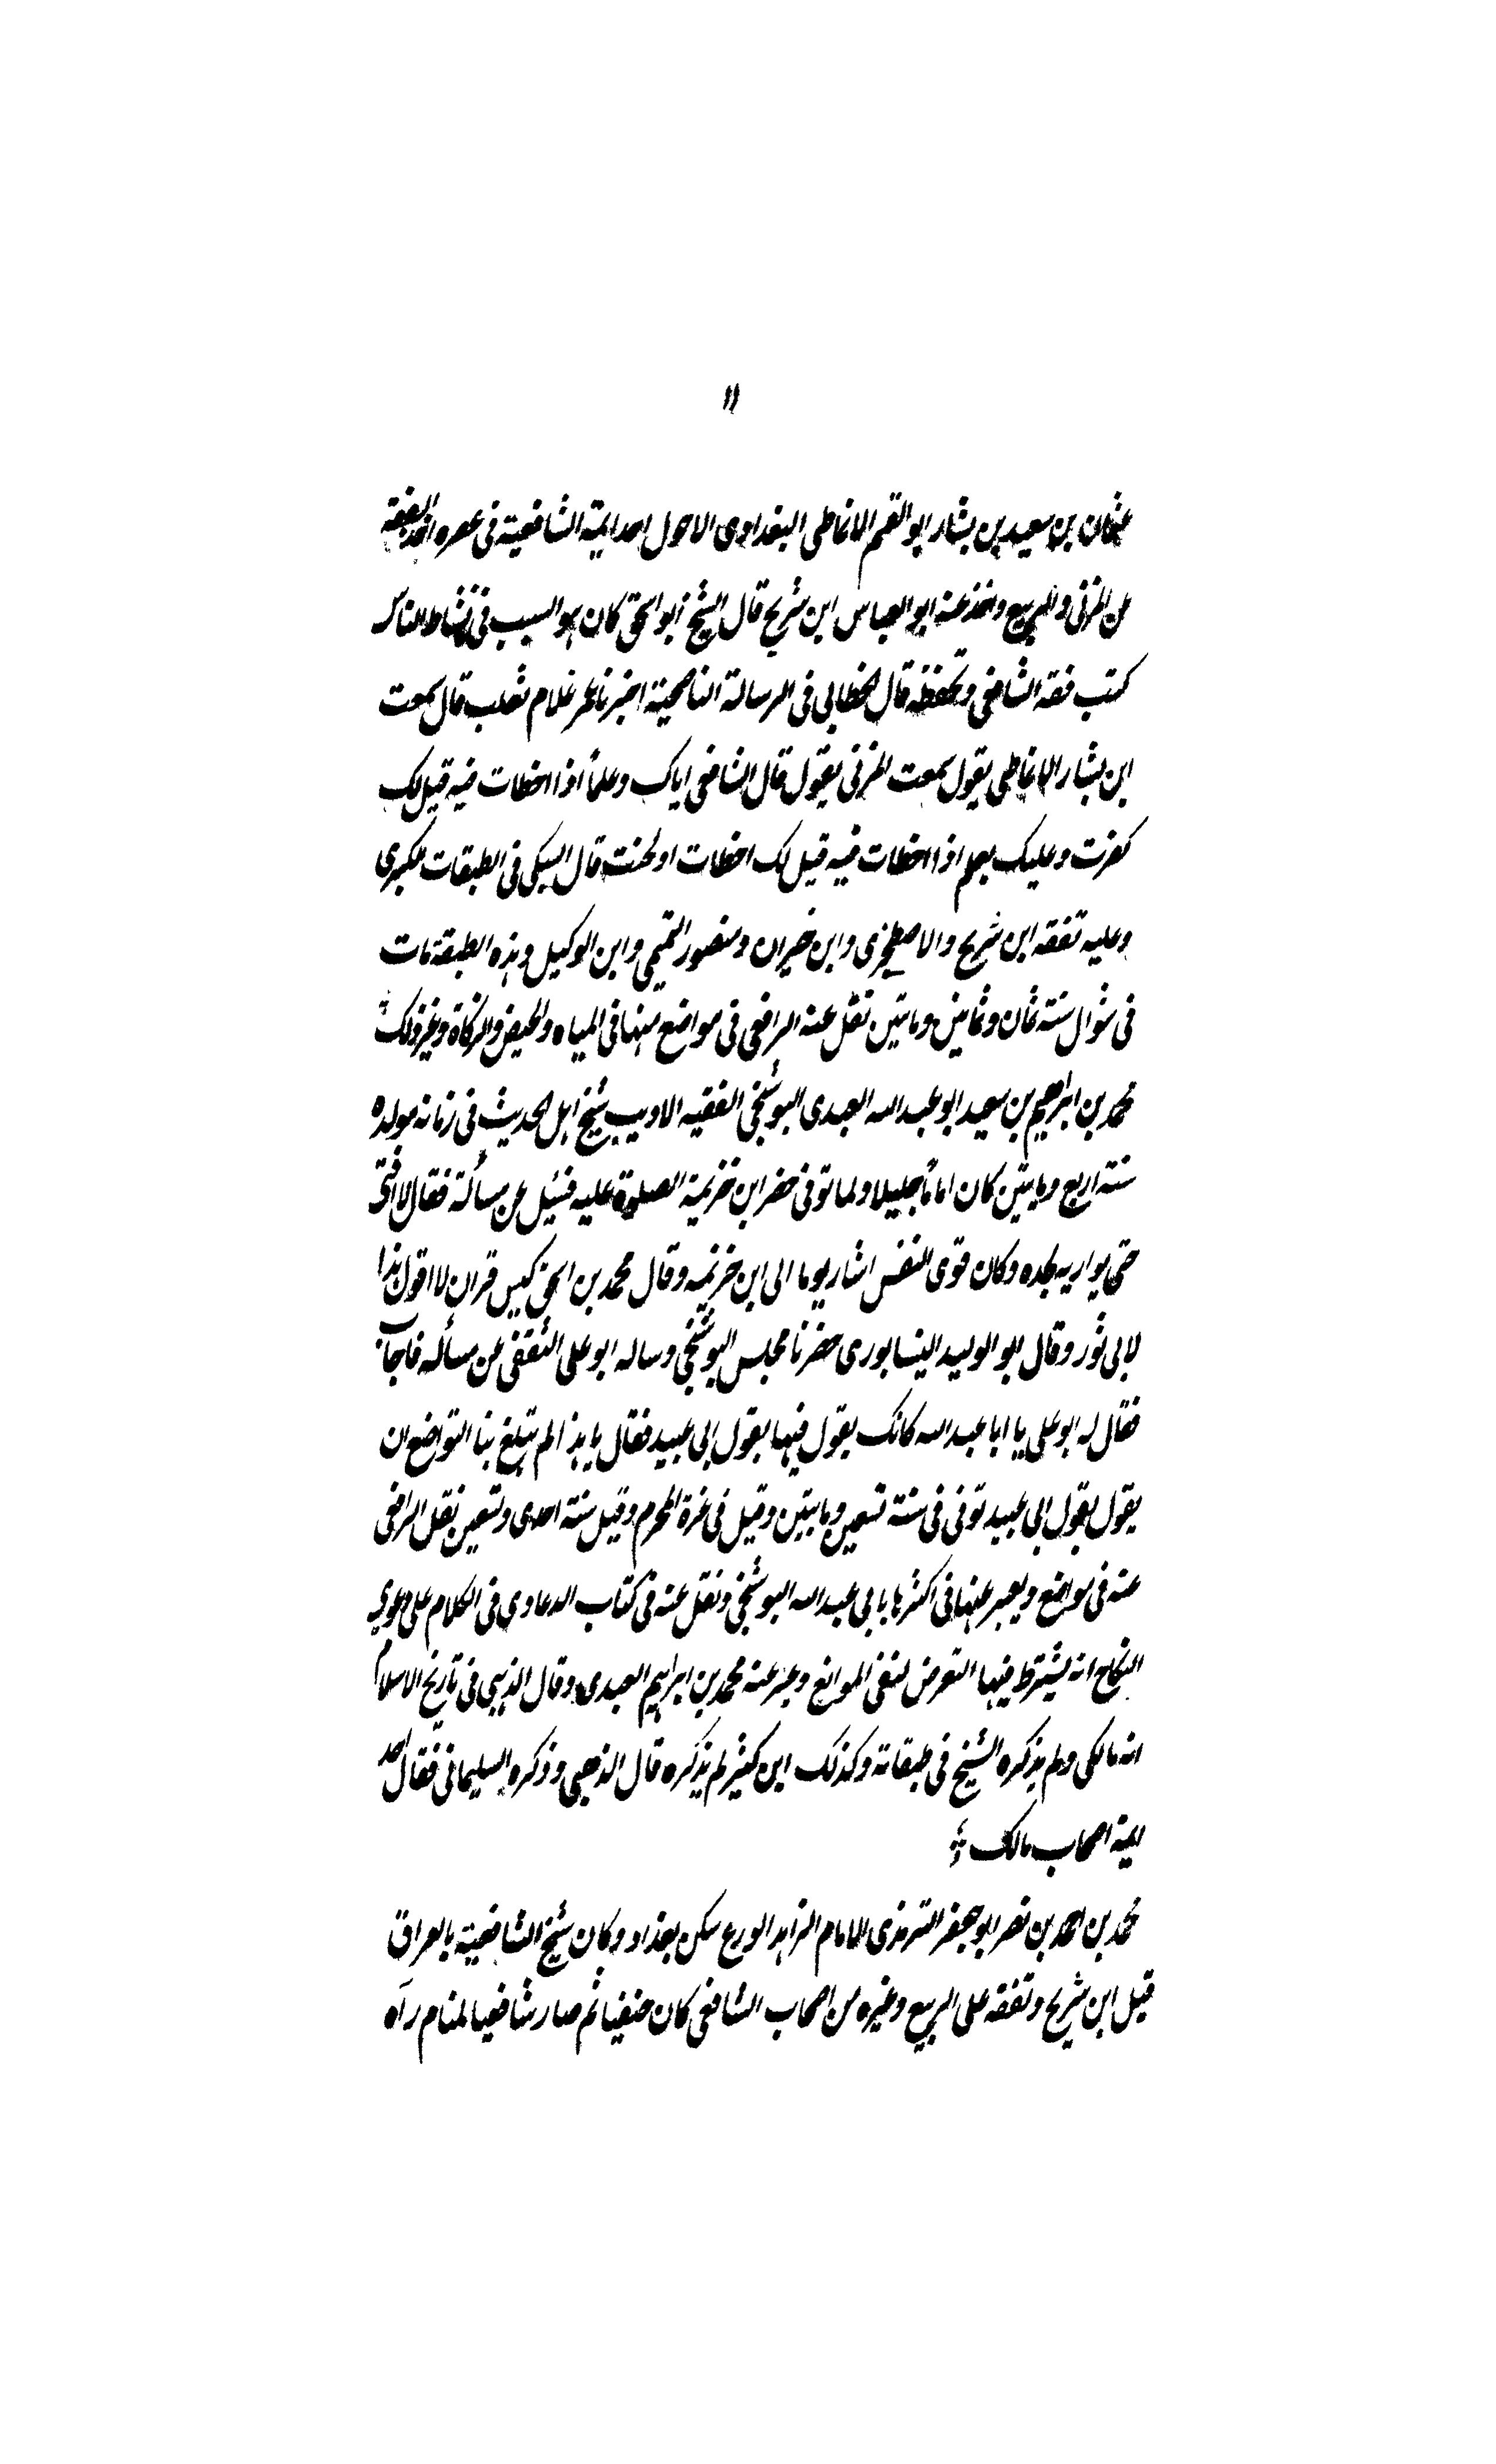 ۱۱
عثمان بن سعيد بن بشار ابو القسم الانماطى البغدادى الاحول احد ايمة الشافعية فى عصره اخذ الفقه
عن المزنى والربيع واخذ عنه ابو العباس ابن شريح قال الشيخ ابو اسحق كان هو السبب فى نشاط الناس
كتب فقه الشافعى وتحفظه قال الخطابى فى الرسالة الناصحية اخبرنا عمر غلام ثعلب قال سمعت
ابن بشار الانماطى يقول سمعت المزنى يقول قال الشافعى اياك وعلماً اذا اخطات فيه قيل لك
كفرت وعليك بعلم اذا اخطات فيه قيل لك اخطات او لحنت قال السبكى فى الطبقات الكبرى
وعليه تفقه ابن شريح والاصطخرى وابن خيران ومنصور التميمى وابن الوكيل وهذه الطبقة مات
فى شوال سنة ثمان وثمانين ومايتين نقل عنه الرافعى فى مواضع منها فى المياه والحيض والزكاة وغير ذلك
محمد بن ابراهيم بن سعيد ابو عبد الله العبدى البوشنجى الفقيه الاديب شيخ اهل الحديث فى زمانه مولده
سنة اربع ومايتين كان اماماً جليلا ولما توفى حضر ابن خزيمة الصلوة عليه فسئل عن مسألة فقال لا افتى
حتى يواريه لحده وكان قوى النفس اشار يوما الى ابن خزيمه وقال محمد بن اسحق كيس قران لا اقول هذا
لابى ثور وقال ابو الوليد النيسابورى حضرنا مجلس البوشنجى وساله ابو على الثقفى عن مسأله فاجاب
فقال له ابو على يا ابا عبد الله كانك يقول فيها بقول ابى عبيد فقال يا هذا لم يبلغ بنا التواضع ان
يقول بقول ابى عبيد توفى فى سنة تسعين ومايتين وقيل فى غرة المحرم وقيل سنة احدى وتسعين نقل الرافعى
عنه فى مواضع ويعبر عنها فى اكثرها بابى عبد الله البوشنجى ونقل عنه فى كتاب الدعاوى فى الكلام على دعوى
النكاح انه يشترط فيها التعرض لنفى الموانع وعبر عنه محمد بن ابراهيم العبدى وقال الذهبى فى تاريخ الاسلام
انه مالكى ولم يذكره الشيخ فى طبقاته وكذلك ابن كثير لم يذكره قال الذهبى وذكره السليمانى فقال احد
ايمة اصحاب مالك
محمد بن احمد بن نصر ابو جعفر الترمذى الامام الزاهد الورع سكن بغداد وكان شيخ الشافعية بالعراق
قبل ابن شريح وتفقه على الربيع وغيره من اصحاب الشافعى كان حنفيا ثم صار شافعيا لمنام رآه